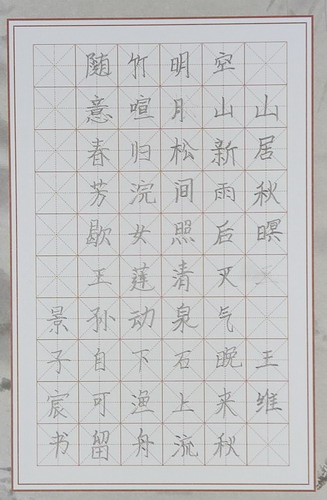 山居秋暝 王维
空山新雨后天气晚来秋
明月松间照清泉石上流
竹喧归浣女莲动下渔舟
随意春芳歇王孙自可留
景子宸书